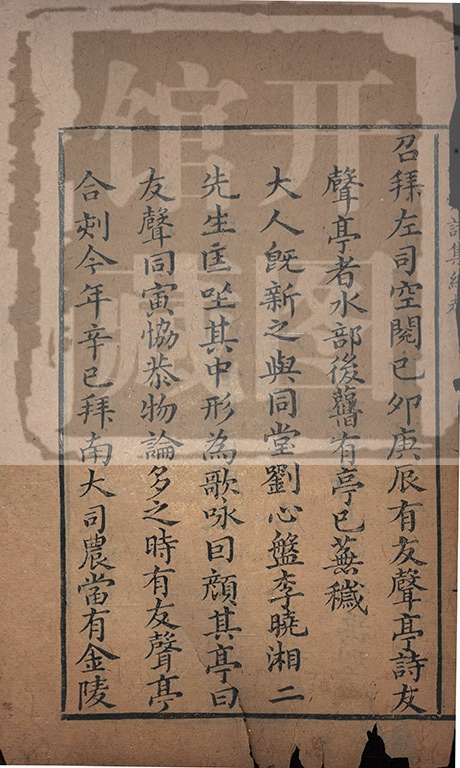 召拜左司空閱已卯庚辰有友聲亭詩友
聲亭者水部後營有亭已蕪穢
大人旣新之與同堂劉心盤李曉湘二
先生匡坐其中形為歌咏因顔其亭曰
友聲同寅恊恭物論多之時有友聲亭
合刻今年辛巳拜南大司農當有金陵
开图
馆藏